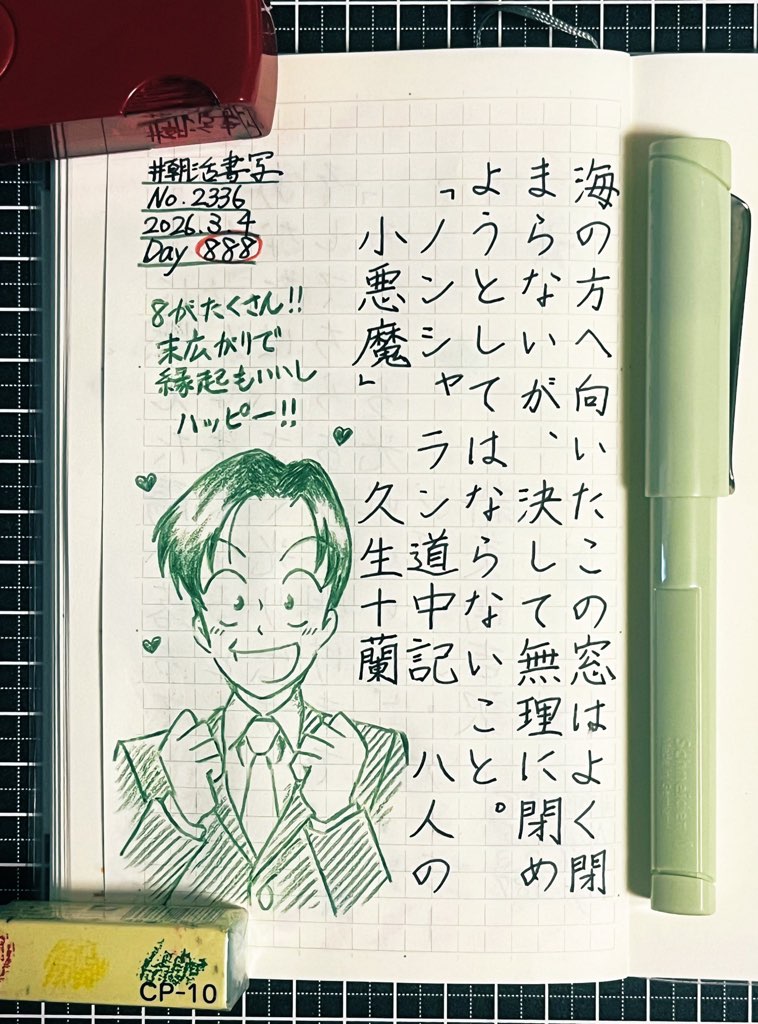 海の方へ向いたこの窓はよく閉
まらないが、決して無理に閉め
ようとしてはならないこと。
「ノンシャラン道中記　八人の
小悪魔」　久生十蘭
#朝活書写
No.2336
2026.3.4
Day 888
8がたくさん!!
末広がりで
縁起もいいし
ハッピー!!
Schneider
CP-10